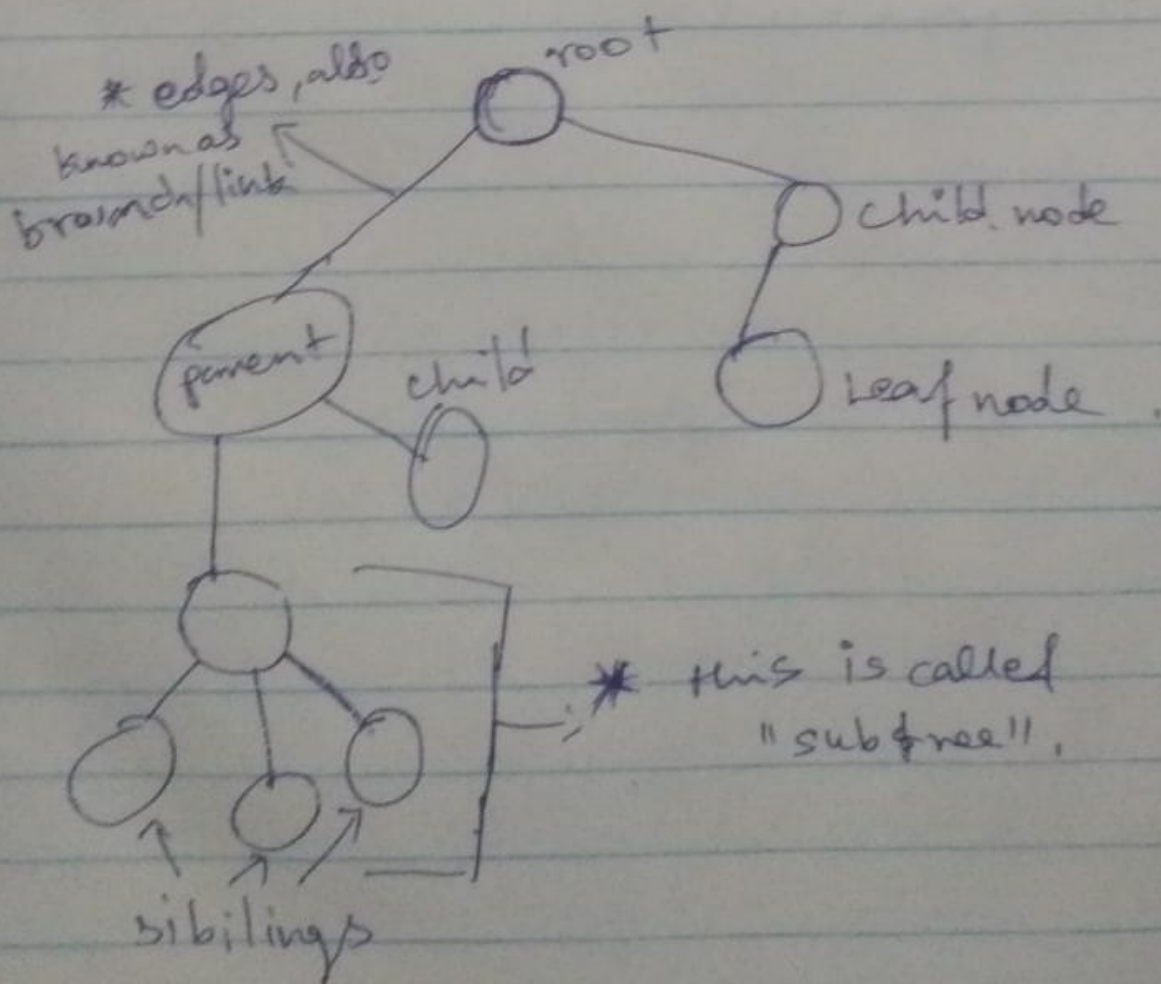 root
* edges, also
known as
branch/link
child node
parent
child
Leaf node
* this is called
"subtree".
sibilings